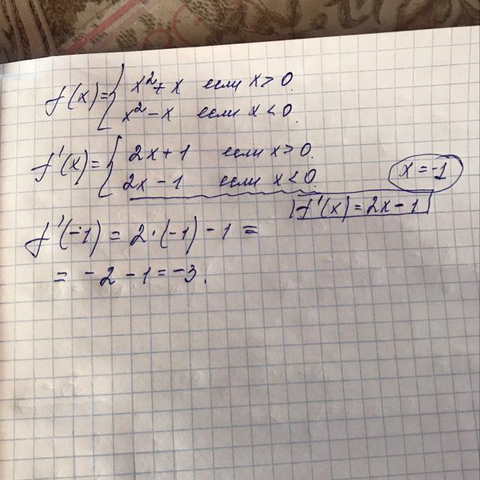 f(x)={ x²+x если x>0.
x²-x если x<0.
f'(x)={ 2x+1 если x>0.
2x-1 если x<0.
x=-1
f'(x)=2x-1
f'(-1)=2·(-1)-1=
=-2-1=-3.